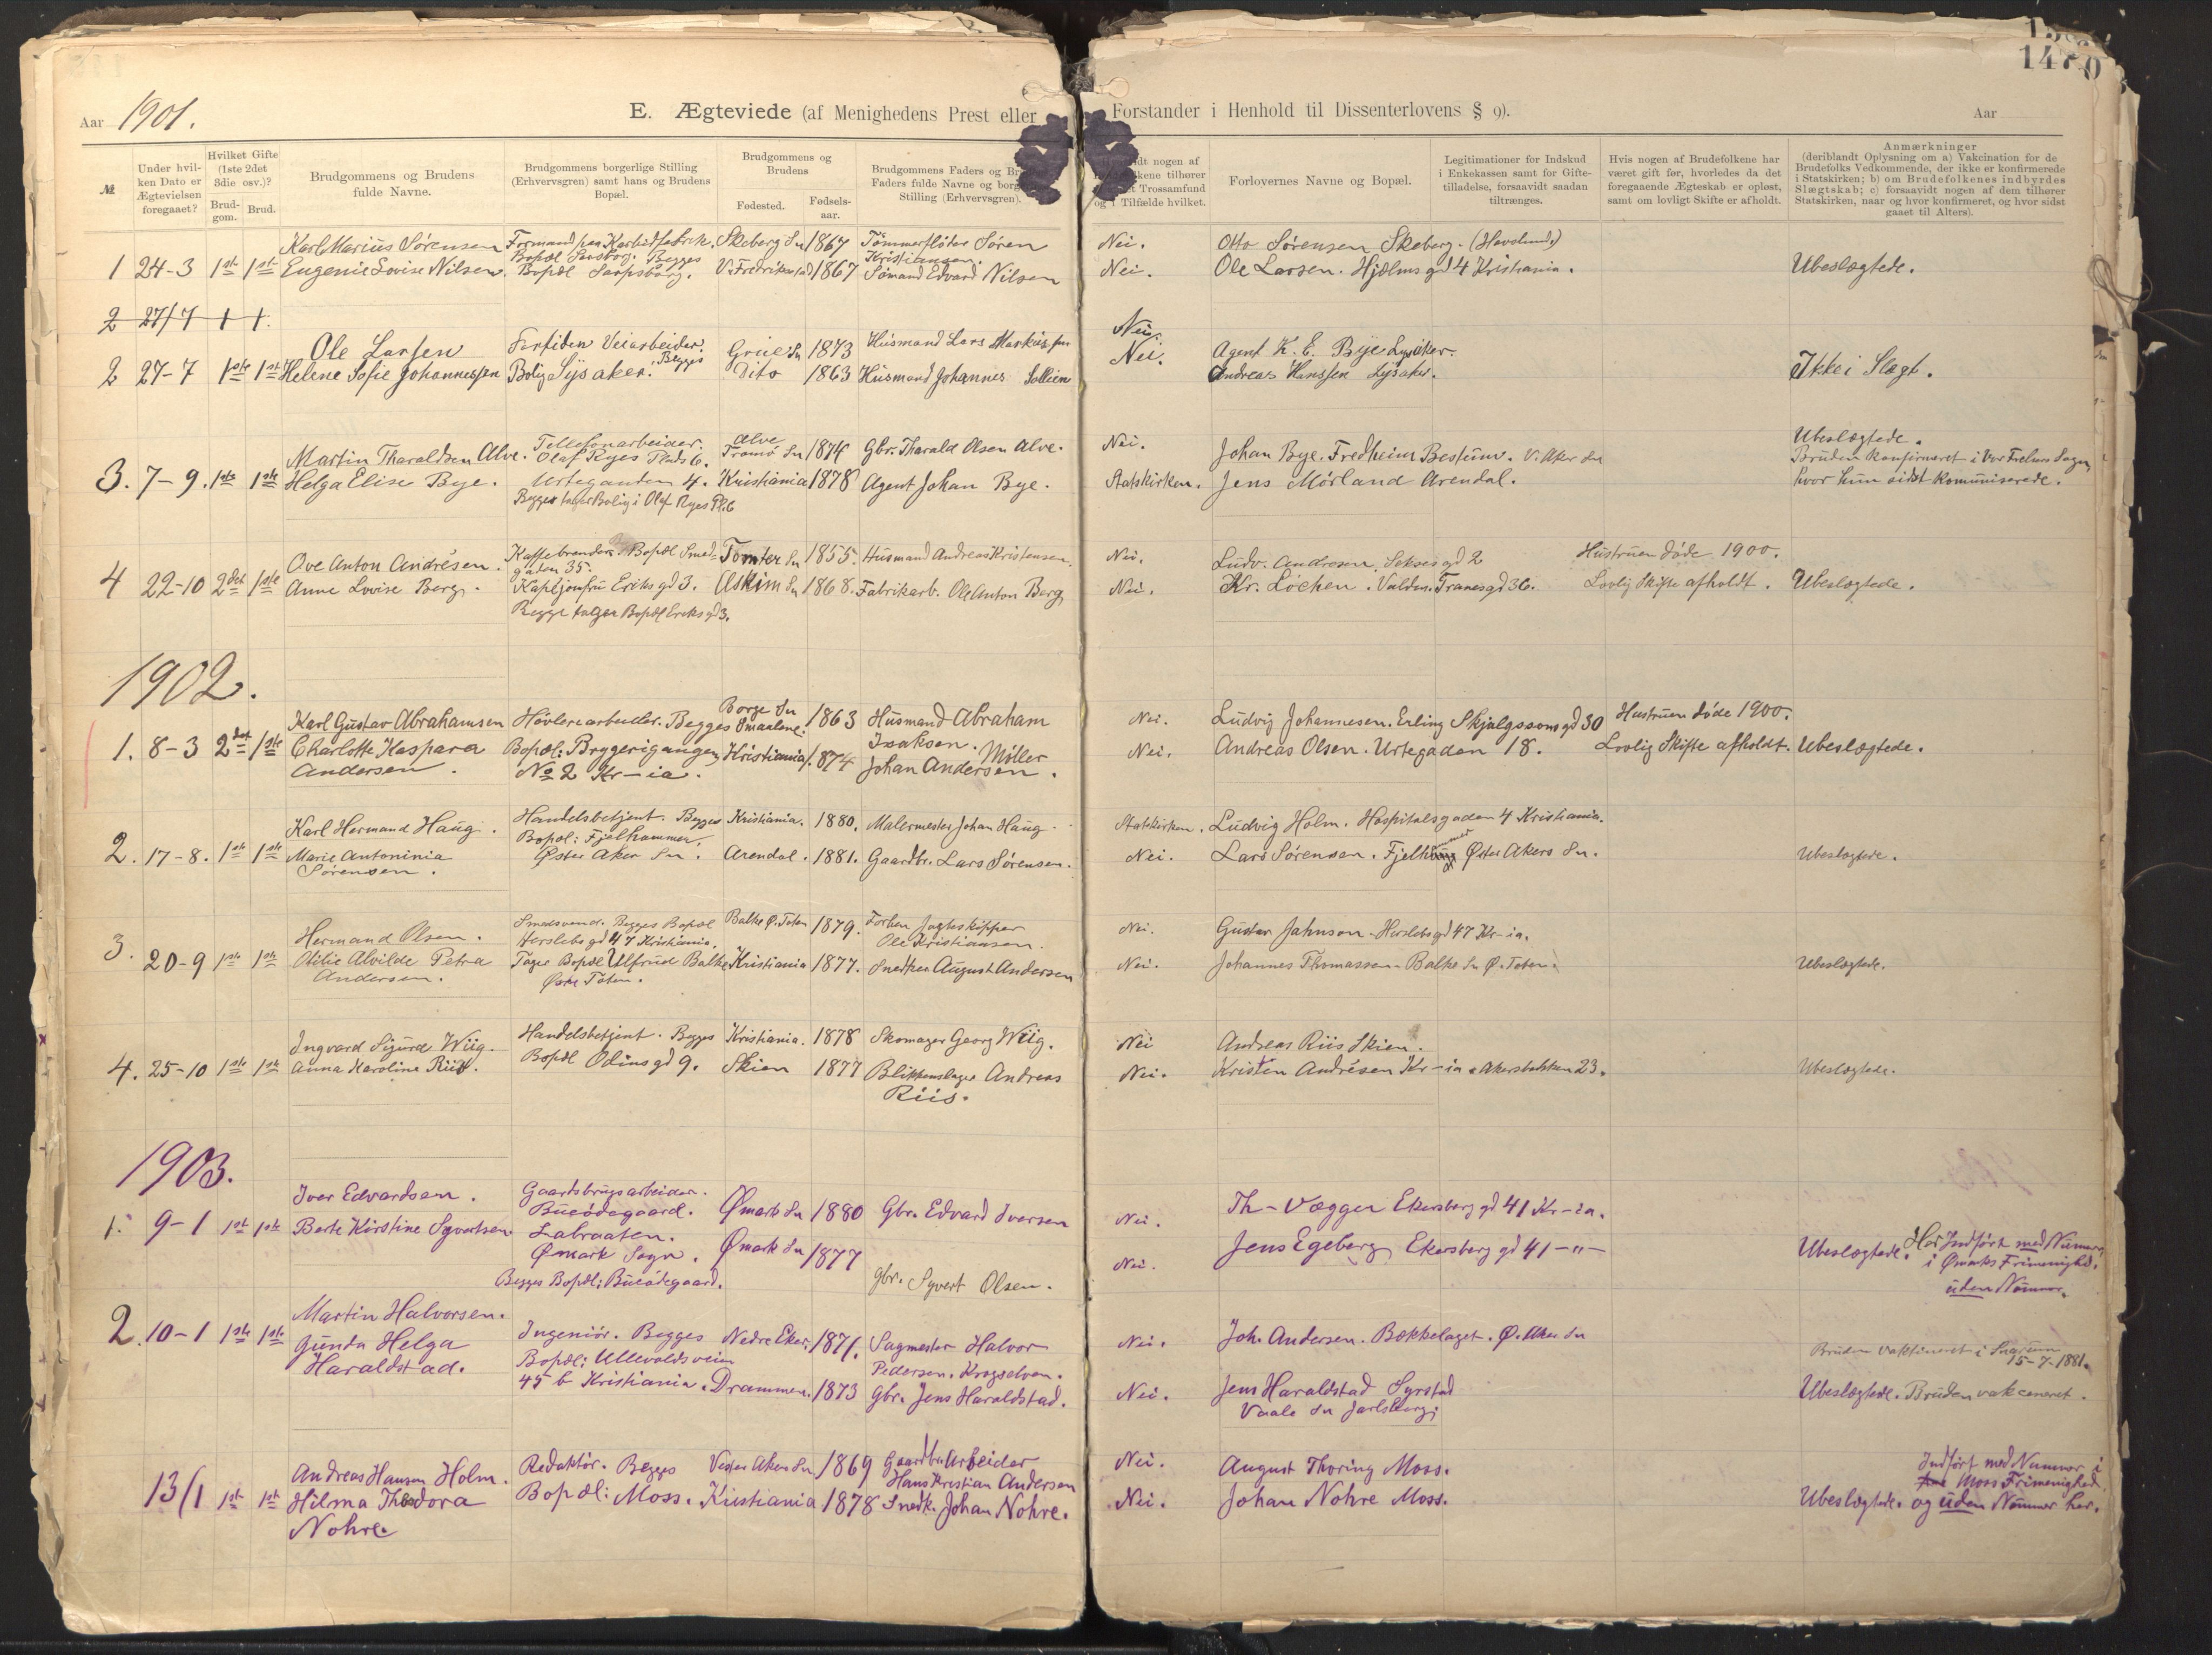 1470
Aar 1901.
E. Ægteviede (af Menighedens Prest eller Forstander i Henhold til Dissenterlovens § 9).
Aar
№
Under hvil-
ken Dato er
Ægtevielsen
foregaaet?
Hvilket Gifte
(1ste 2det
3die osv.)?
Brud-
gom.
Brud.
Brudgommens og Brudens
fulde Navne.
Brudgommens borgerlige Stilling
(Erhvervsgren) samt hans og Brudens
Bopæl.
Brudgommens og
Brudens
Fødested.
Fødsels-
aar.
Brudgommens Faders og
Faders fulde Navne og
Stilling (Erhvervsgren).
nogen af
tilhører
Trossamfund
og i Tilfælde hvilket.
Forlovernes Navne og Bopæl.
Legitimationer for Indskud
i Enkekassen samt for Gifte-
tilladelse, forsaavidt saadan
tiltrænges.
Hvis nogen af Brudefolkene har
været gift før, hvorledes da det
foregaaende Ægteskab er opløst,
samt om lovligt Skifte er afholdt.
Anmærkninger
(deriblandt Oplysning om a) Vakcination for de
Brudefolks Vedkommende, der ikke er konfirmerede
i Statskirken; b) om Brudefolkenes indbyrdes
Slægtskab; c) forsaavidt nogen af dem tilhører
Statskirken, naar og hvor konfirmeret, og hvor sidst
gaaet til Alters).
1 24-3 1ste 1ste
Karl Marius Sörensen
Eugenie Lovise Nilsen.
Formand paa Karbidfabrik.
Bopæl Sarpsborg. Begges
Bopæl Sarpsborg.
Skeberg Sn 1867
V. Fredrikstad 1867
Tömmerflöder Sören
Kristiansen.
Sömand Edvard Nilsen
Nei.
Nei.
Otto Sörensen Skeberg.
Ole Larsen. Hjelms gd 4 Kristiania.
Ubeslægtede.
2 27/7 1 1.
2 27-7 1ste 1ste
Ole Larsen
Helene Sofie Johannessen
Veiarbeider.
Begges
Bolig Lysaker.
Grue Sn 1873
Dito 1863
Husmand Lars
Husmand Johannes
Nei
Nei.
Agent K. E. Bye Lysaker.
Andreas Hanssen Lysaker.
Ikke i Slægt.
3. 7-9. 1ste 1ste
Martin Tharaldsen Alve.
Helga Elise Bye.
Tellefonarbeider.
Olaf Ryes Plads 6.
Urtegaden 4.
Begges tager Bolig i Olaf Ryes Pl. 6
Alve
Tromö Sn 1874
Kristiania 1878
Gbr. Tharald Olsen Alve.
Agent Johan Bye.
Nei.
Statskirken.
Johan Bye. Fredheim Bestum. V. Aker Sn
Jens Mörland Arendal.
Ubeslægtede.
Bruden konfirmeret i Vor Frelsers Sogn,
hvor hun sidst kommuniserede.
4 22-10 2det 1ste
Ove Anton Andrésen.
Anne Lovise Berg.
Kaffebrænder. Bopæl Smed-
gaden 35.
Eriks gd 3.
Begge tager Bopæl Eriks gd 3.
Tomter Sn 1855.
Askim Sn 1868.
Husmand Andreas Kristensen.
Fabrikarb. Ole Anton Berg
Nei.
Nei.
Ludv. Andresen. gd 2
Kr. Löchen. Valdm. Tranes gd 36.
Hustruen döde 1900.
Lovlig Skifte afholdt.
Ubeslægtede.
1902.
1. 8-3 2det 1ste
Karl Gustav Abrahamsen
Charlotte Kaspara
Andersen.
Hövleriarbeider. Begges
Bopæl: Bryggerigangen
No 2 Kr-ia.
Borge Sn
Smaalene. 1863
Kristiania. 1874
Husmand Abraham
Isaksen.
Möller
Johan Andersen.
Nei.
Nei.
Ludvig Johannesen. Erling Skjalgssons gd 30
Andreas Olsen. Urtegaden 18.
Hustruen döde 1900.
Lovlig Skifte afholdt.
Ubeslægtede.
2. 17-8. 1ste 1ste
Karl Hermand Haug.
Marie Antoninia
Sörensen.
Handelsbetjent. Begges
Bopæl: Fjelhammer,
Öster Aker Sn.
Kristiania. 1880.
Arendal. 1881.
Malermester Johan Haug.
Gaardbr. Lars Sörensen.
Statskirken.
Nei.
Ludvig Holm. Hospitalsgaden 4 Kristiania.
Lars Sörensen. Fjelhammer Öster Akers Sn.
Ubeslægtede.
3. 20-9 1ste 1ste
Hermand Olsen.
Otilie Alvilde Petra
Andersen.
Smedsvend. Begges Bopæl
Herslebs gd 47 Kristiania.
Tager Bopæl Ulfsrud Balke
Östre Toten.
Balke Ö. Toten 1879.
Kristiania 1877.
Forhen Jagteskipper
Ole Kristiansen.
Snedker August Andersen
Nei.
Nei.
Gustav Jahnson. Herslebs gd 47 Kr-ia.
Johannes Thomassen. Balke Sn Ö. Toten.
Ubeslægtede.
4. 25-10 1ste 1ste
Ingvard Sigurd Wiig.
Anna Karoline Riis.
Handelsbetjent. Begges
Bopæl Odins gd 9.
Kristiania. 1878
Skien 1877
Skomager Georg Wiig.
Blikkenslager Andreas
Riis.
Nei
Nei.
Andreas Riis Skien.
Kristen Andrésen Kr-ia. Akersbakken 23.
Ubeslægtede.
1903.
1. 9-1 1ste 1ste
Iver Edvardsen.
Berte Kirstine Syvertsen.
Gaardsbrugsarbeider.
Bueödegaard.
Labraaten.
Ömark Sogn.
Begges Bopæl: Bueödegaard.
Ömark Sn 1880
Ömark Sn 1877
Gbr. Edvard Iversen
Gbr. Syvert Olsen.
Nei.
Nei.
Th- Vægger Ekersberg gd 41 Kr-ia.
Jens Egeberg, Ekersberg gd 41 -"-
Ubeslægtede.
Har Indfört med Nummer
i Ömarks Frimenighed.
uden Nummer.
2. 10-1 1ste 1ste
Martin Halvorsen.
Gunda Helga
Haraldstad.
Ingeniör. Begges
Bopæl: Ullevoldsveien
45 b Kristiania.
Nedre Eker. 1871.
Drammen. 1873
Sagmester Halvor
Pedersen. Krogselven.
Gbr. Jens Haraldstad.
Nei.
Nei.
Joh. Andersen. Bækkelaget. Ö. Aker Sn
Jens Haraldstad Syrstad
Vaale Sn Jarlsberg.
Bruden vaktineret i
15-7-1881.
Ubeslægtede. Bruden vakceneret.
13/1 1ste 1ste
Andreas Hansen Holm.
Hilma Theodora
Nohre.
Redaktör. Begges
Bopæl: Moss.
Vester Aker Sn. 1869
Kristiania 1878
Gaardbr. Arbeider
Hans Kristian Andersen
Snedk. Johan Nohre.
Nei.
Nei.
August Thoring Moss.
Johan Nohre Moss.
Indfört med Nummer i
Moss Frimenighed
Ubeslægtede. og uden Nummer her.